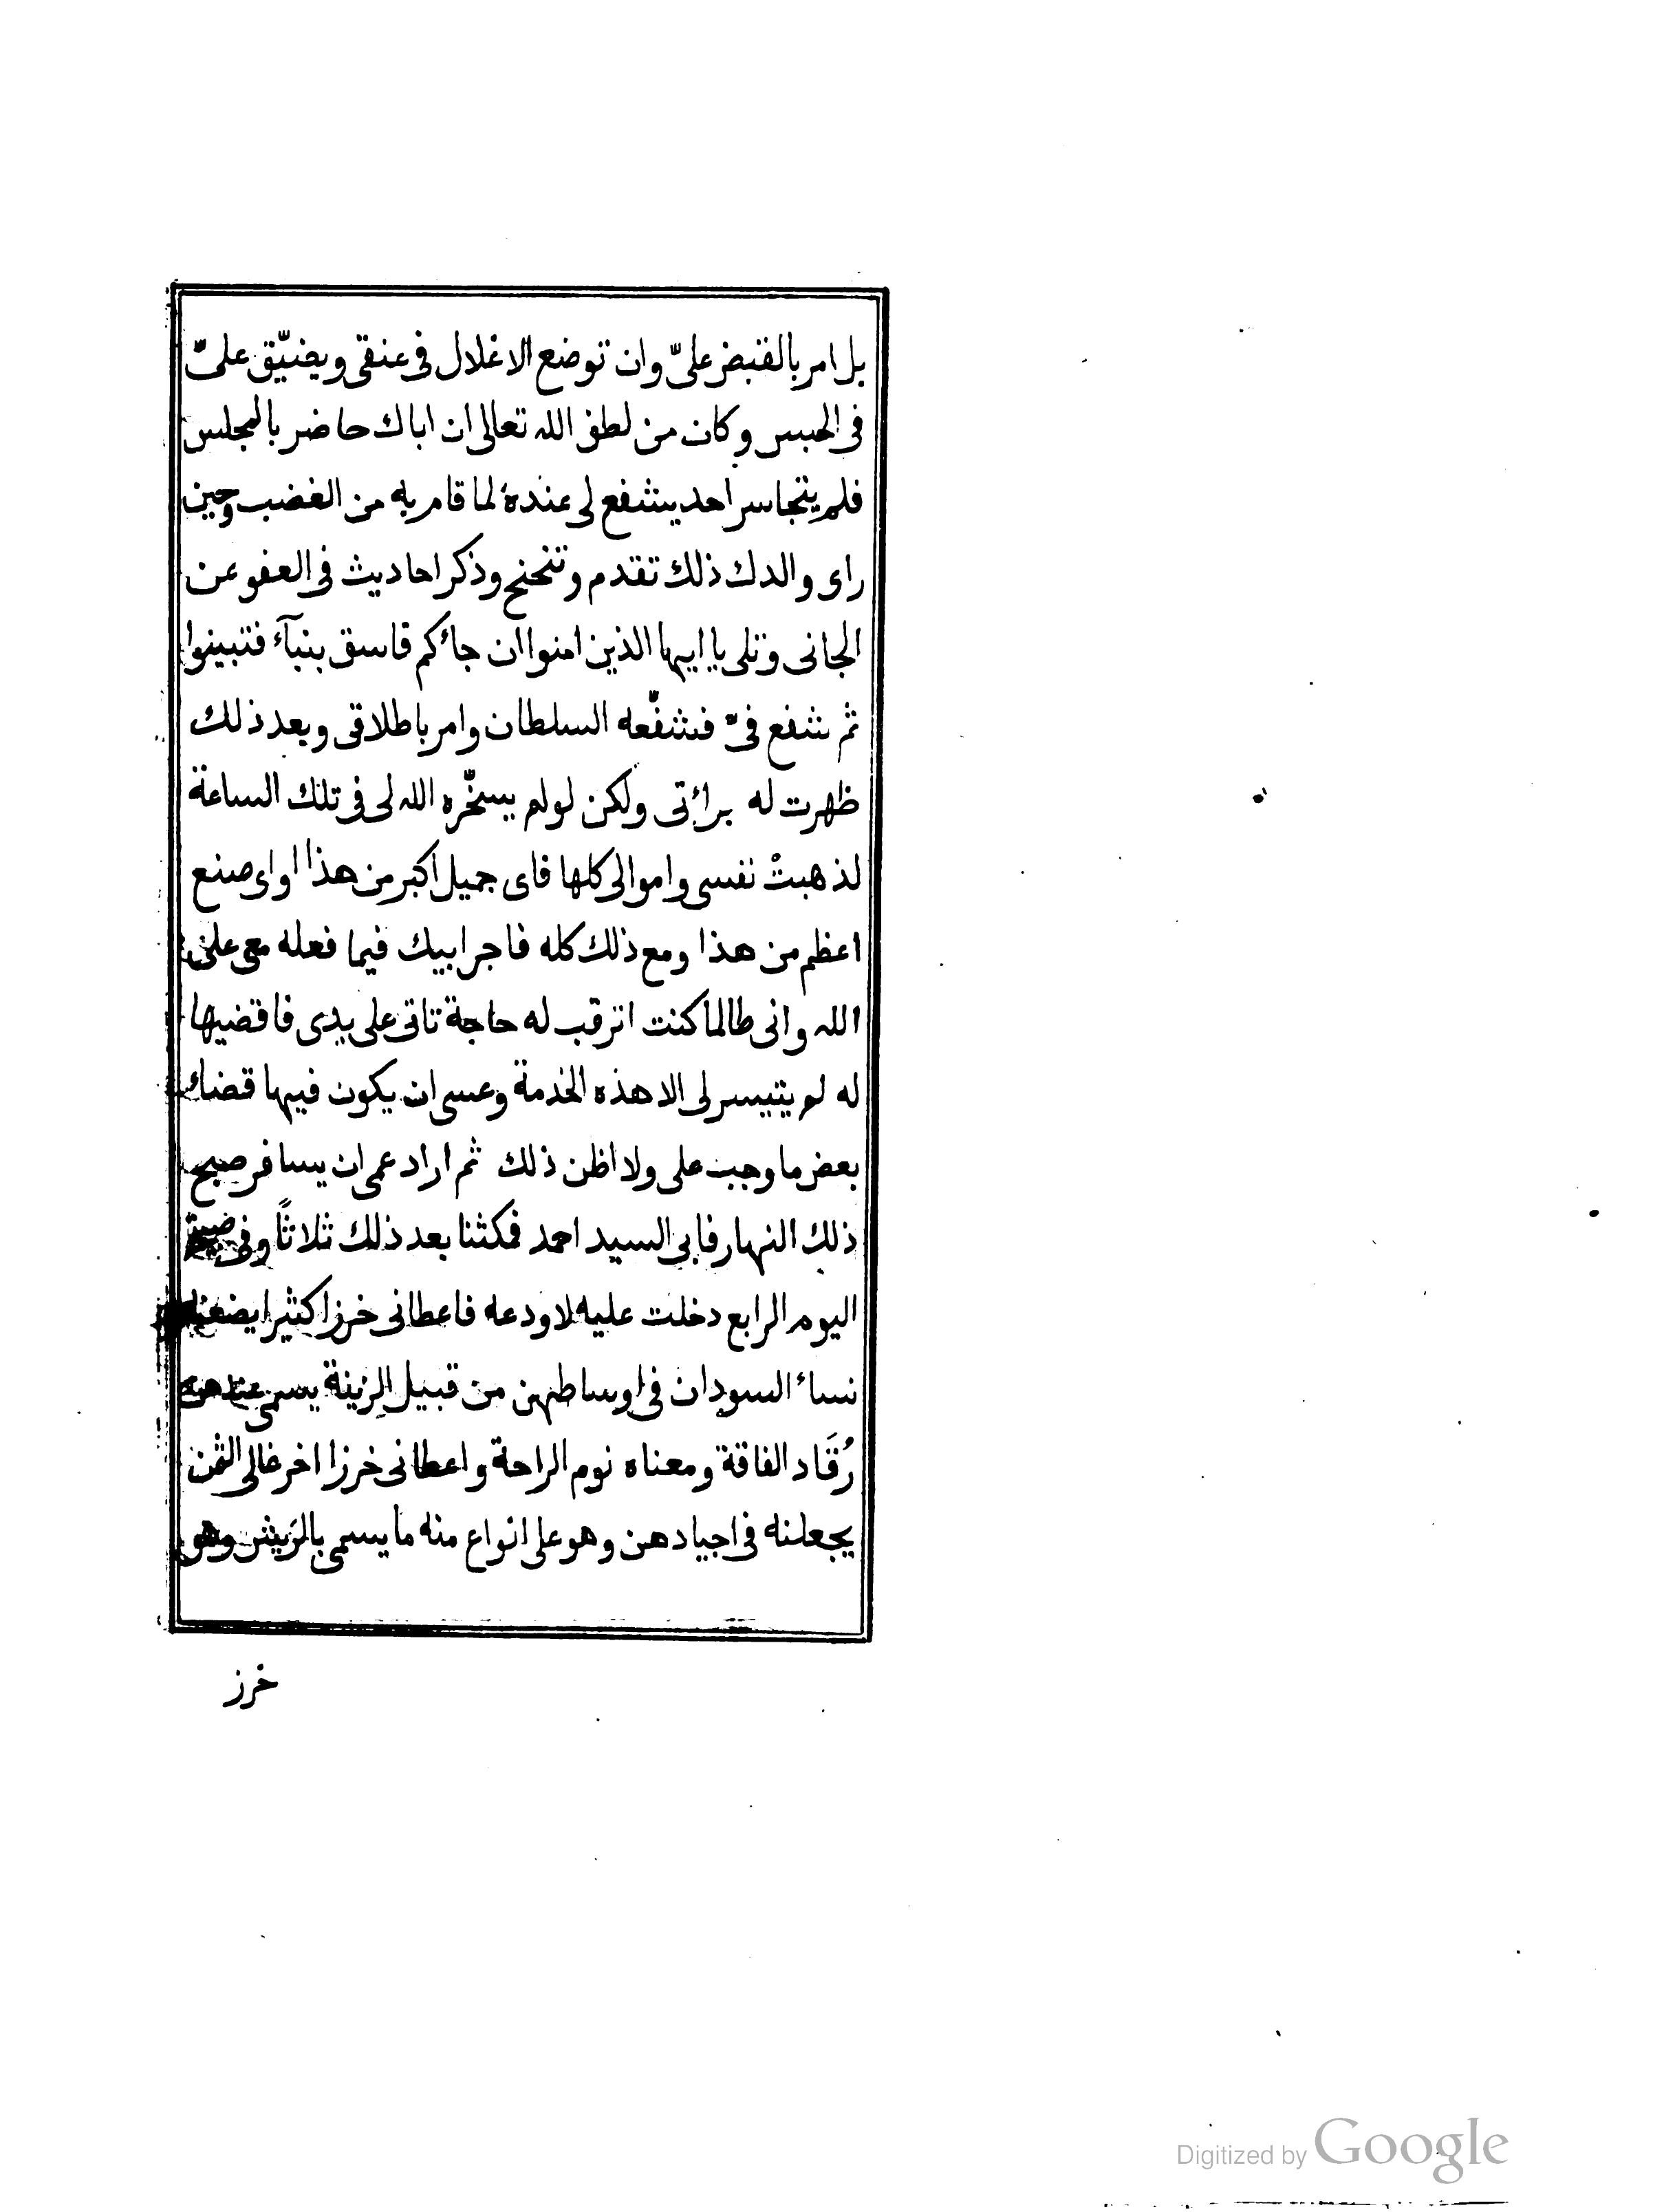 بل امر بالقبض علىّ وان توضع الاغلال فى عنقى ويضيّق علىّ
فى الحبس وكان من لطف الله تعالى ان اباك حاضر بالمجلس
فلم يتجاسر احد يشفع لى عنده لما قام به من الغضب وحين
راى والدك ذلك تقدم وتنحنح وذكر احاديث فى العفو عن
الجانى وتلى يا ايها الذين امنوا ان جائكم فاسق بنبآء فتبينوا
ثم شفع فىّ فشفّعه السلطان وامر باطلاقى وبعد ذلك
ظهرت له برائتى ولكن لو لم يسخّره الله لى فى تلك الساعة
لذهبتْ نفسى واموالى كلها فاى جميل اكبر من هذا او اى صنع
اعظم من هذا ومع ذلك كله فاجر ابيك فيما فعله معى على
الله وانى طالما كنت اترقب له حاجة تاتى على يدى فاقضيها
له لم يتيسر لى الا هذه الخدمة وعسى ان يكون فيها قضاء
بعض ما وجب على ولا اظن ذلك ثم اراد عمى ان يسافر صبح
ذلك النهار فابى السيد احمد فمكثنا بعد ذلك ثلاثاً وفى
اليوم الرابع دخلت عليه لاودعه فاعطانى خرزا كثيرا يضعنه
نساء السودان فى اوساطهن من قبيل الزينة يسمى عندهن
رُقَاد الفاقة ومعناه نوم الراحة واعطانى خرزا اخر غالى الثمن
يجعلنه فى اجيادهن وهو على انواع منه ما يسمى بالريش وهو
خرز
Digitized by Google